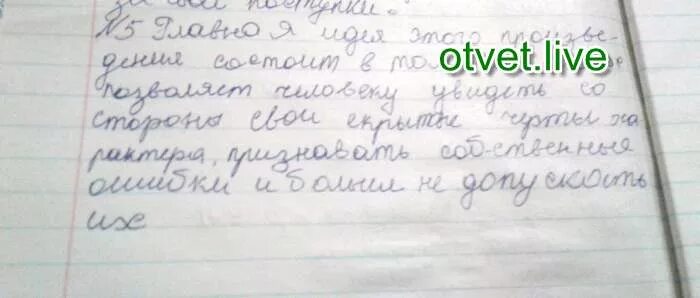 за свои поступки.
№5 Главная идея этого произве-
дения состоит в том
otvet.live
позволяет человеку увидеть со
стороны свои скрытые черты ха
рактера, признавать собственные
ошибки и больше не допускость
их